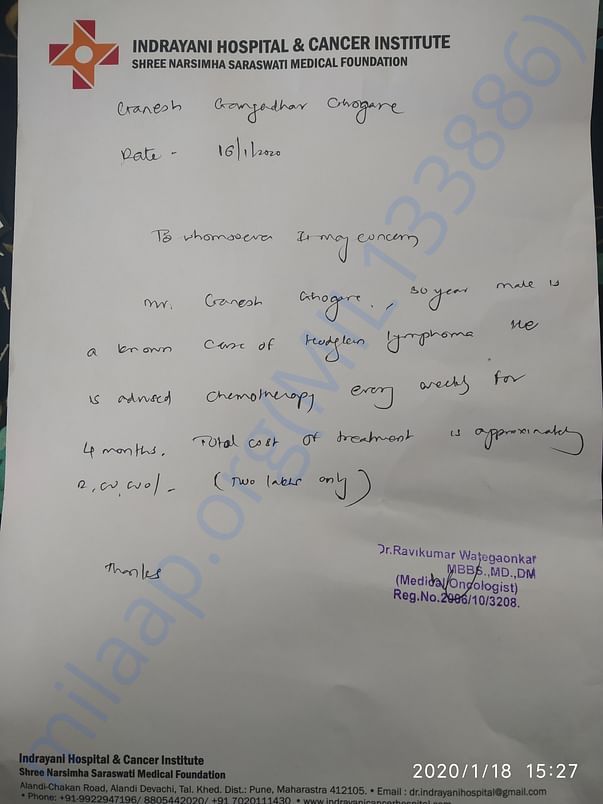 INDRAYANI HOSPITAL & CANCER INSTITUTE
SHREE NARSIMHA SARASWATI MEDICAL FOUNDATION
Ganesh Gangadhar Ghogare
Date - 16/1/2020
To whomsoever It may concern
Mr. Ganesh Ghogare., 30 year male is
a known case of Hodgkin lymphoma He
is advised chemotherapy every weekly for
4 months. Total cost of treatment is approximately
2,00,000/- (Two lakhs only)
Thanks
Dr.Ravikumar Wategaonkar
MBBS.,MD.,DM
(Medical Oncologist)
Reg.No.2006/10/3208.
milaap.org(MIL133886)
Indrayani Hospital & Cancer Institute
Shree Narsimha Saraswati Medical Foundation
Alandi-Chakan Road, Alandi Devachi, Tal. Khed. Dist.: Pune, Maharastra 412105. • Email : dr.indrayanihospital@gmail.com
• Phone: +91-9922947196/ 8805442020/ +91 7020111430 • www.indrayanicancerhospital.com
2020/1/18 15:27